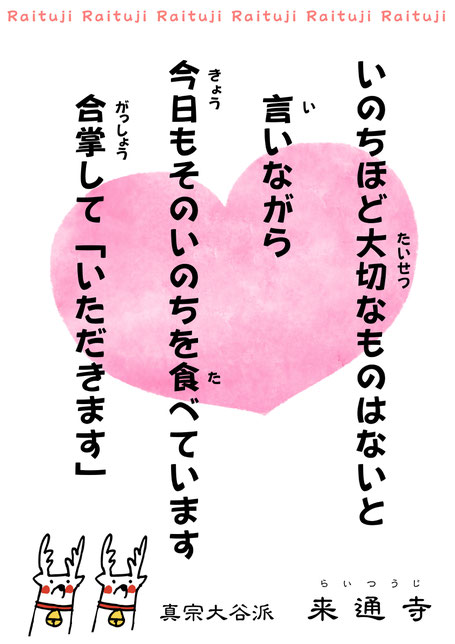 Raituji Raituji Raituji Raituji Raituji Raituji
いのちほど大切なものはないと
たいせつ
言いながら
い
今日もそのいのちを食べています
きょう
た
合掌して「いただきます」
がっしょう
真宗大谷派 来通寺
らいつうじ